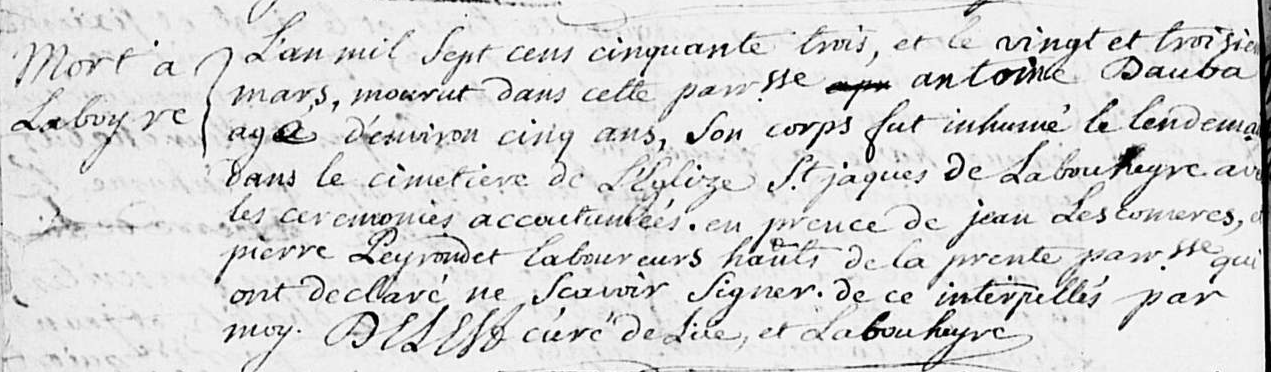 Mort a
Laboyre
L'an mil sept cens cinquante trois, et le vingt et troisie
mars, mourut dans cette parr.sse antoine Dauba
agé d'environ cinq ans, son corps fut inhumé le lendema
dans le cimetiere de L'Eglize St jaques de Labouheyre av
les ceremonies accoutumées. en prence de jean Lescomeres, e
pierre Peyrondet laboureurs hants de la prente parr.sse qui
ont declaré ne scavoir signer. de ce interpellés par
moy. DELEST curé de Lüe, et Labouheyre